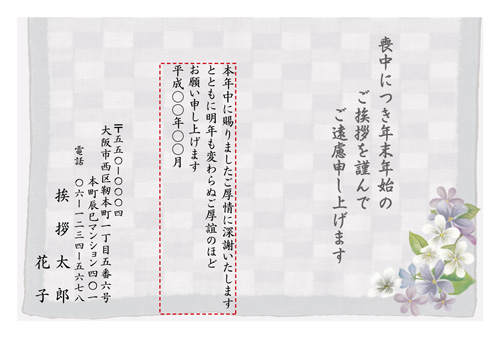 喪中につき年末年始の
ご挨拶を謹んで
ご遠慮申し上げます
本年中に賜りましたご厚情に深謝いたします
とともに明年も変わらぬご厚誼のほど
お願い申し上げます
平成〇〇年〇〇月
〒五五〇-〇〇〇四
大阪市西区靭本町一丁目五番六号
本町辰巳マンション四〇一
電話 〇六-一二三四-五六七八
挨拶太郎
花子